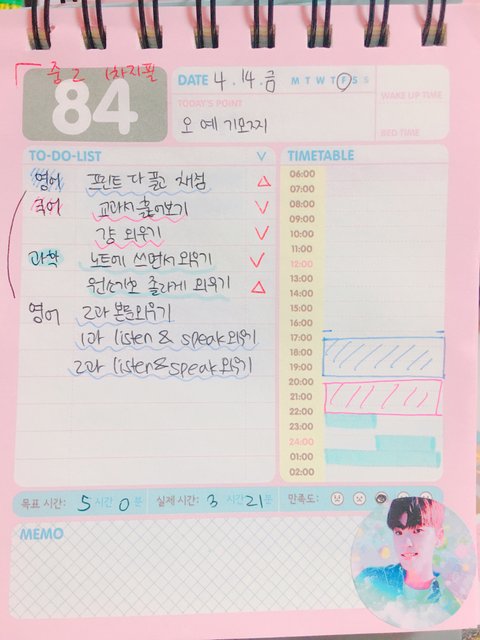 중2 1차지필
84
DATE 4.14.금 M T W T F S S
TODAY'S POINT
오 예 기모찌
WAKE UP TIME
BED TIME
TO-DO-LIST V
영어 프린트 다 풀고 채점 △
국어 교과서 훑어보기 V
걍 외우기 V
과학 노트에 쓰면서 외우기 V
원소기호 졸라게 외우기 △
영어 2과 본문외우기
1과 listen & speak 외우기
2과 listen & speak 외우기
TIMETABLE
06:00
07:00
08:00
09:00
10:00
11:00
12:00
13:00
14:00
15:00
16:00
17:00
18:00
19:00
20:00
21:00
22:00
23:00
24:00
01:00
02:00
목표 시간: 5 시간 0 분 실제 시간: 3 시간 21 분 만족도:
MEMO